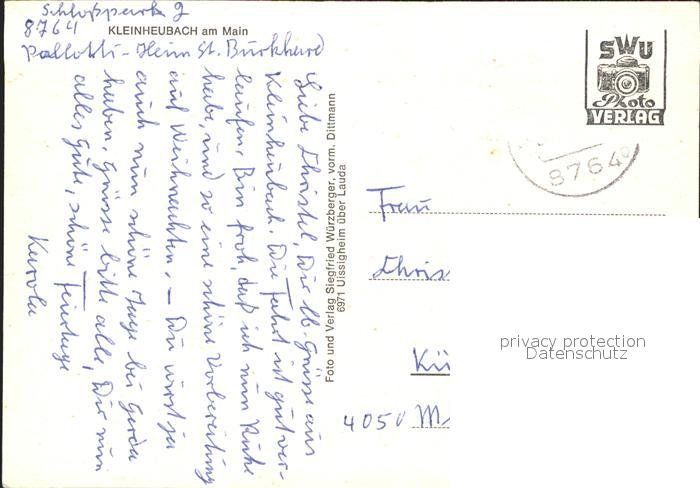 Schloßpark 2
8764
KLEINHEUBACH am Main
Pallotti-Heim St. Burkhard
Liebe Christel, Dir lb. Grüsse aus
Kleinheubach. Die Fahrt ist gut ver-
laufen. Bin froh, daß ich nun Ruhe
habe, und so eine schöne Vorbereitung
auf Weihnachten. – Du wirst ja
auch nun schöne Tage bei Gerda
haben, Grüsse bitte alle, Dir nun
alles Gute, schöne Feiertage
Karola
Foto und Verlag Siegfried Würzberger, vorm. Dittmann
6971 Uissigheim über Lauda
SWU
Photo
VERLAG
8764
Frau
Chris
privacy protection
Datenschutz
Kü
4050 M